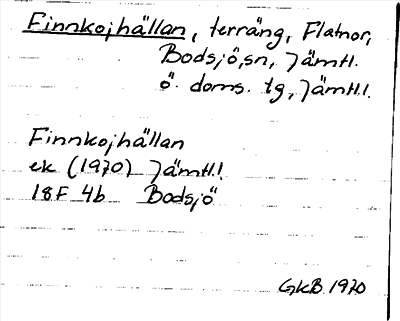 Finnkojhällan, terräng, Flatnor,
Bodsjö, sn, Jämtl.
ö. doms. tg, Jämtl.l.
Finnkojhällan
ek (1970) Jämtl.l
18F 4b Bodsjö
GKB 1970